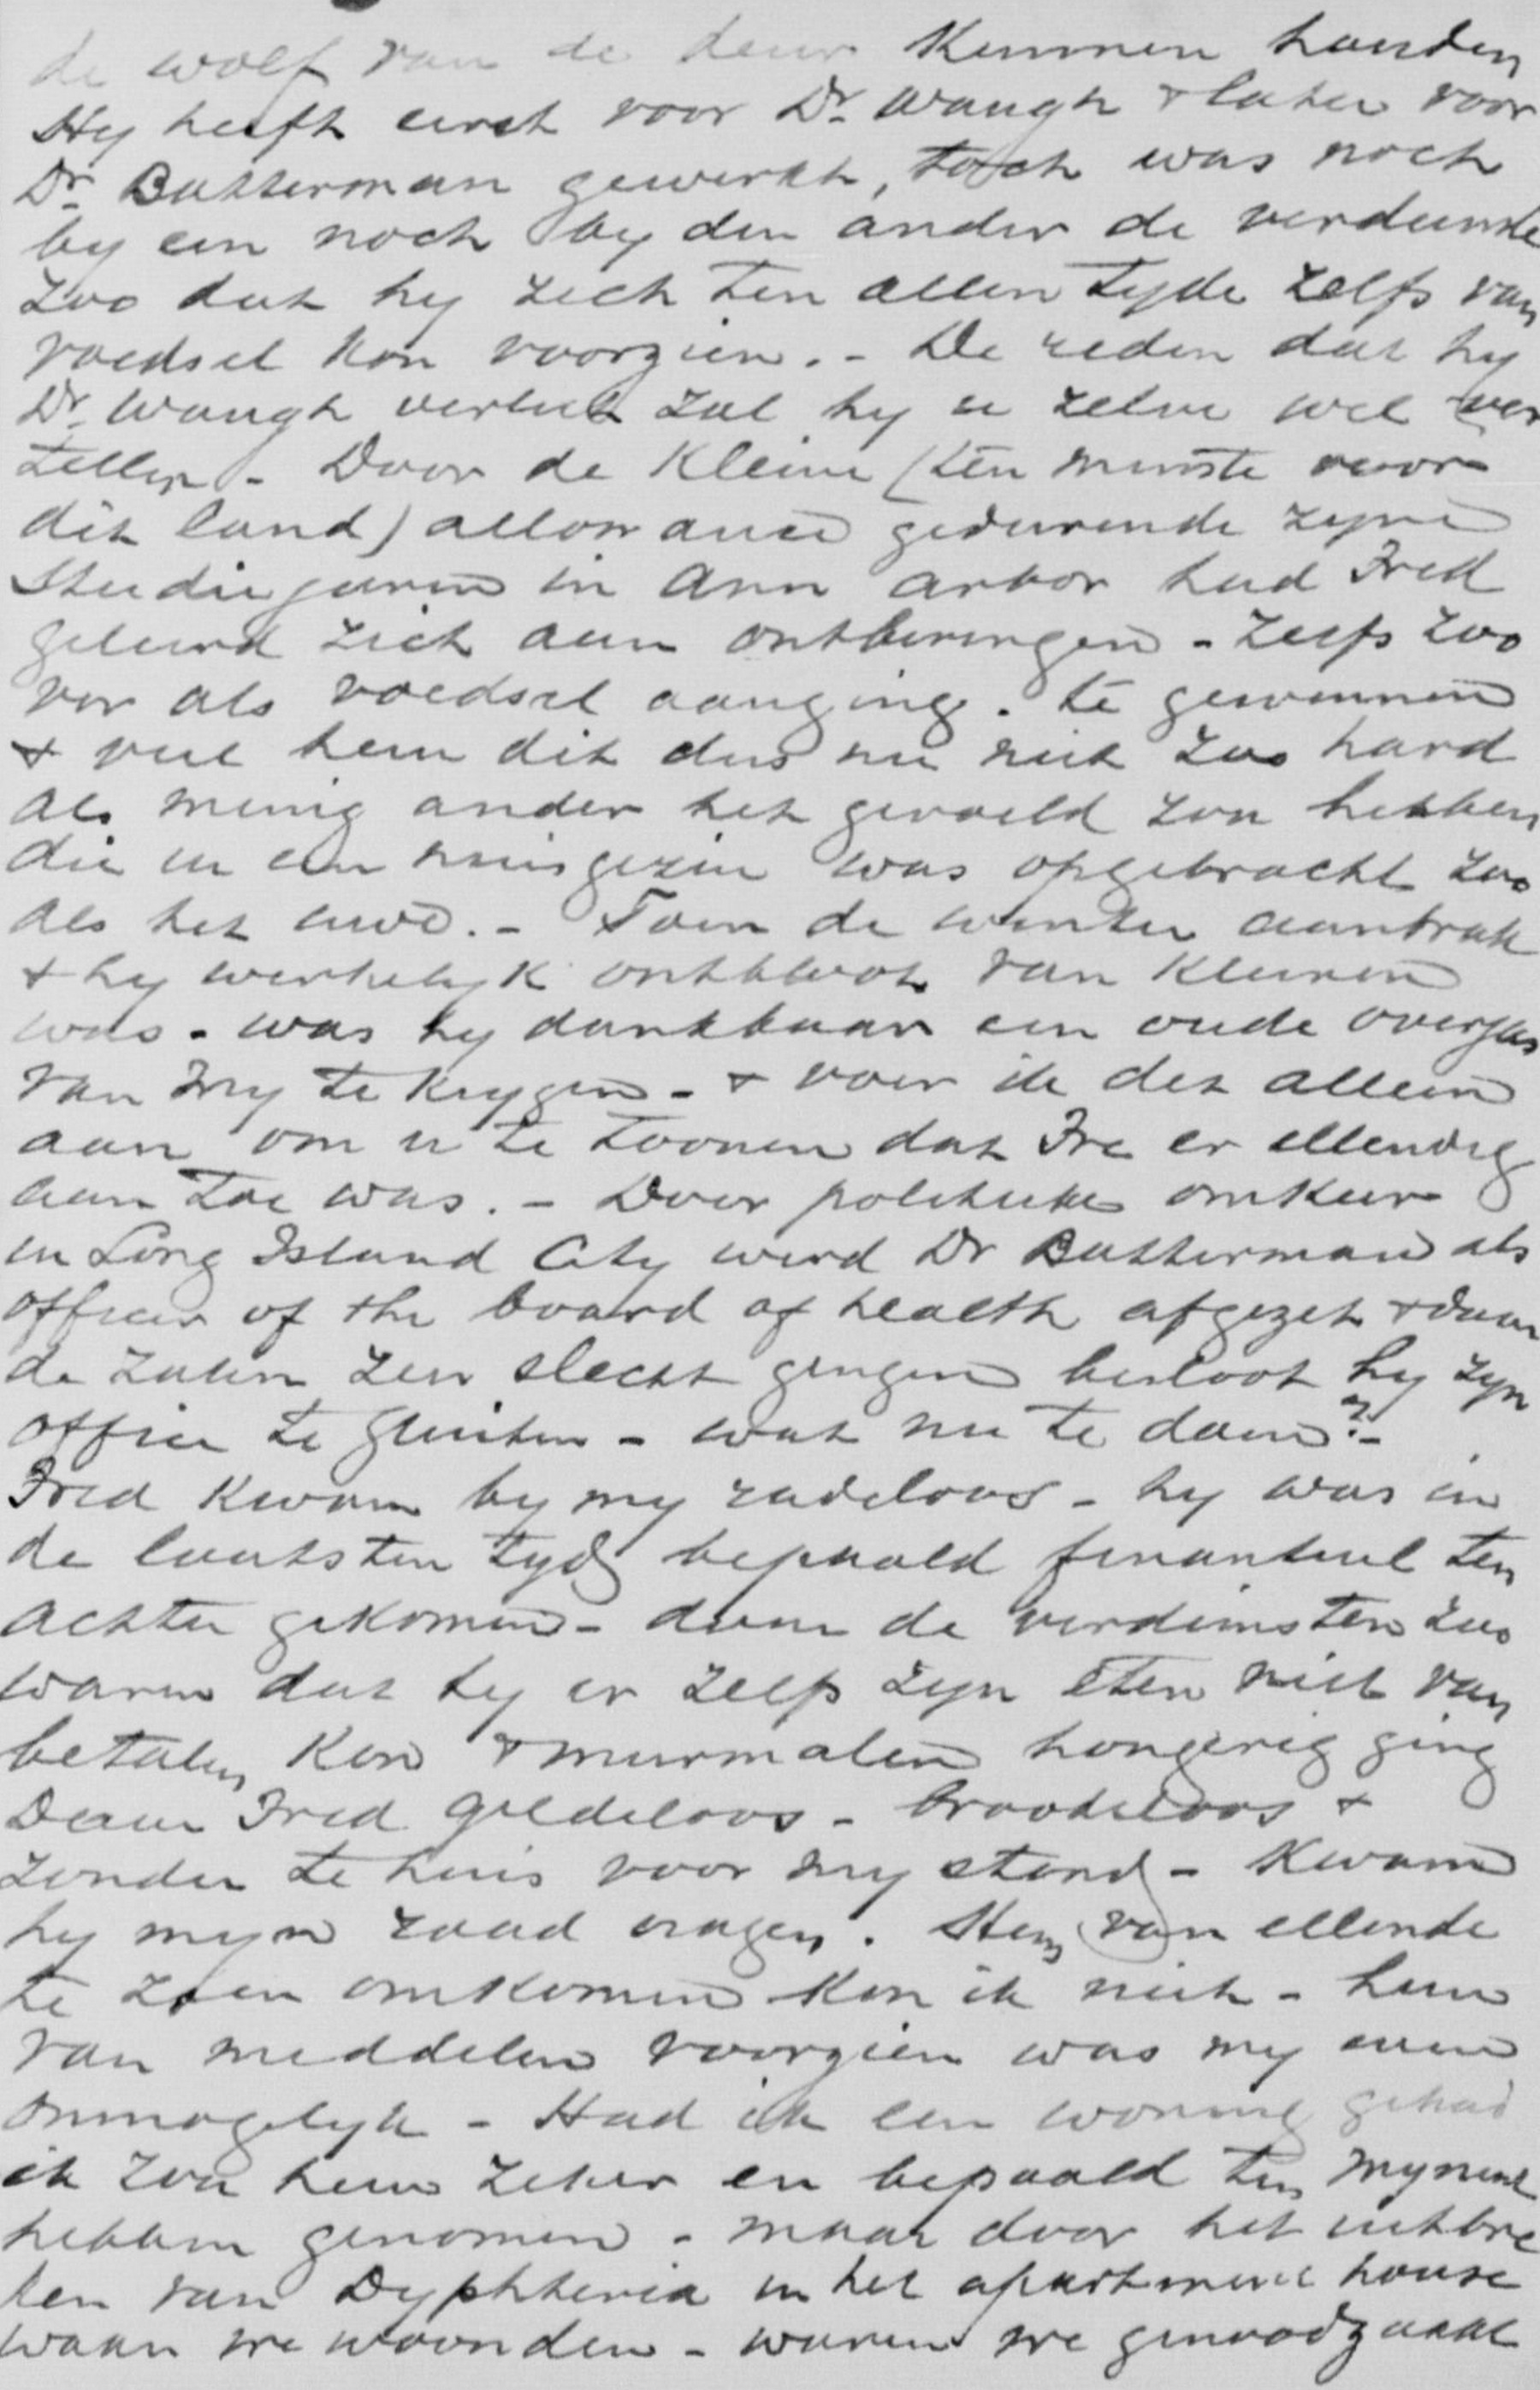 de wolf van de deur kunnen houden
Hy heeft eerst voor Dr. Waugh & later voor
Dr. Batterman gewerkt, toch was noch
by een noch by den ander de verdienste
zoo dat hy zich ten allen tyde zelfs van
voedsel kon voorzien. - De reden dat hy
Dr. Waugh verliet zal hy u zelve wel ver
tellen - Door de kleine (ten minste voor
dit land) allowance gedurende zyne
studiejaren in Ann Arbor had Fred
geleerd zich aan ontberingen - zelfs zoo
ver als voedsel aanging. te gewennen
& viel hem dit dus nu niet zoo hard
als menig ander het gevoeld zou hebben
die in een huisgezin was opgebracht zoo
als het uwe. - Toen de winter aanbrak
& hy werkelyk ontbloot van kleeren
was - was hy dankbaar een oude overjas
van my te krygen - & voer ik dit alleen
aan om u te toonen dat Fre er ellendig
aan toe was. - Door politieke omkeer
in Long Island City werd Dr Batterman als
officer of the board of health afgezet & daar
de zaken zeer slecht gingen besloot hy zyn
office te sluiten - wat nu te doen? -
Fred kwam by my radeloos - hy was in
de laatsten tyd bepaald finantieel ten
achter gekomen - daar de verdiensten zoo
waren dat hy er zelfs zyn eten niet van
betalen kon & meermalen hongerig ging
Daar Fred geldeloos - broodeloos &
zonder te huis voor my stond - kwam
hy myn raad vragen. Hem van ellende
te zien omkomen kon ik niet - hem
van middelen voorzien was my even
onmogelyk - Had ik een woning gehad
ik zou hem zeker en bepaald ten mynent
hebben genomen - maar door het uitbre
ken van Dyphteria in het apartment house
waar we woonden - waren we genoodzaakt